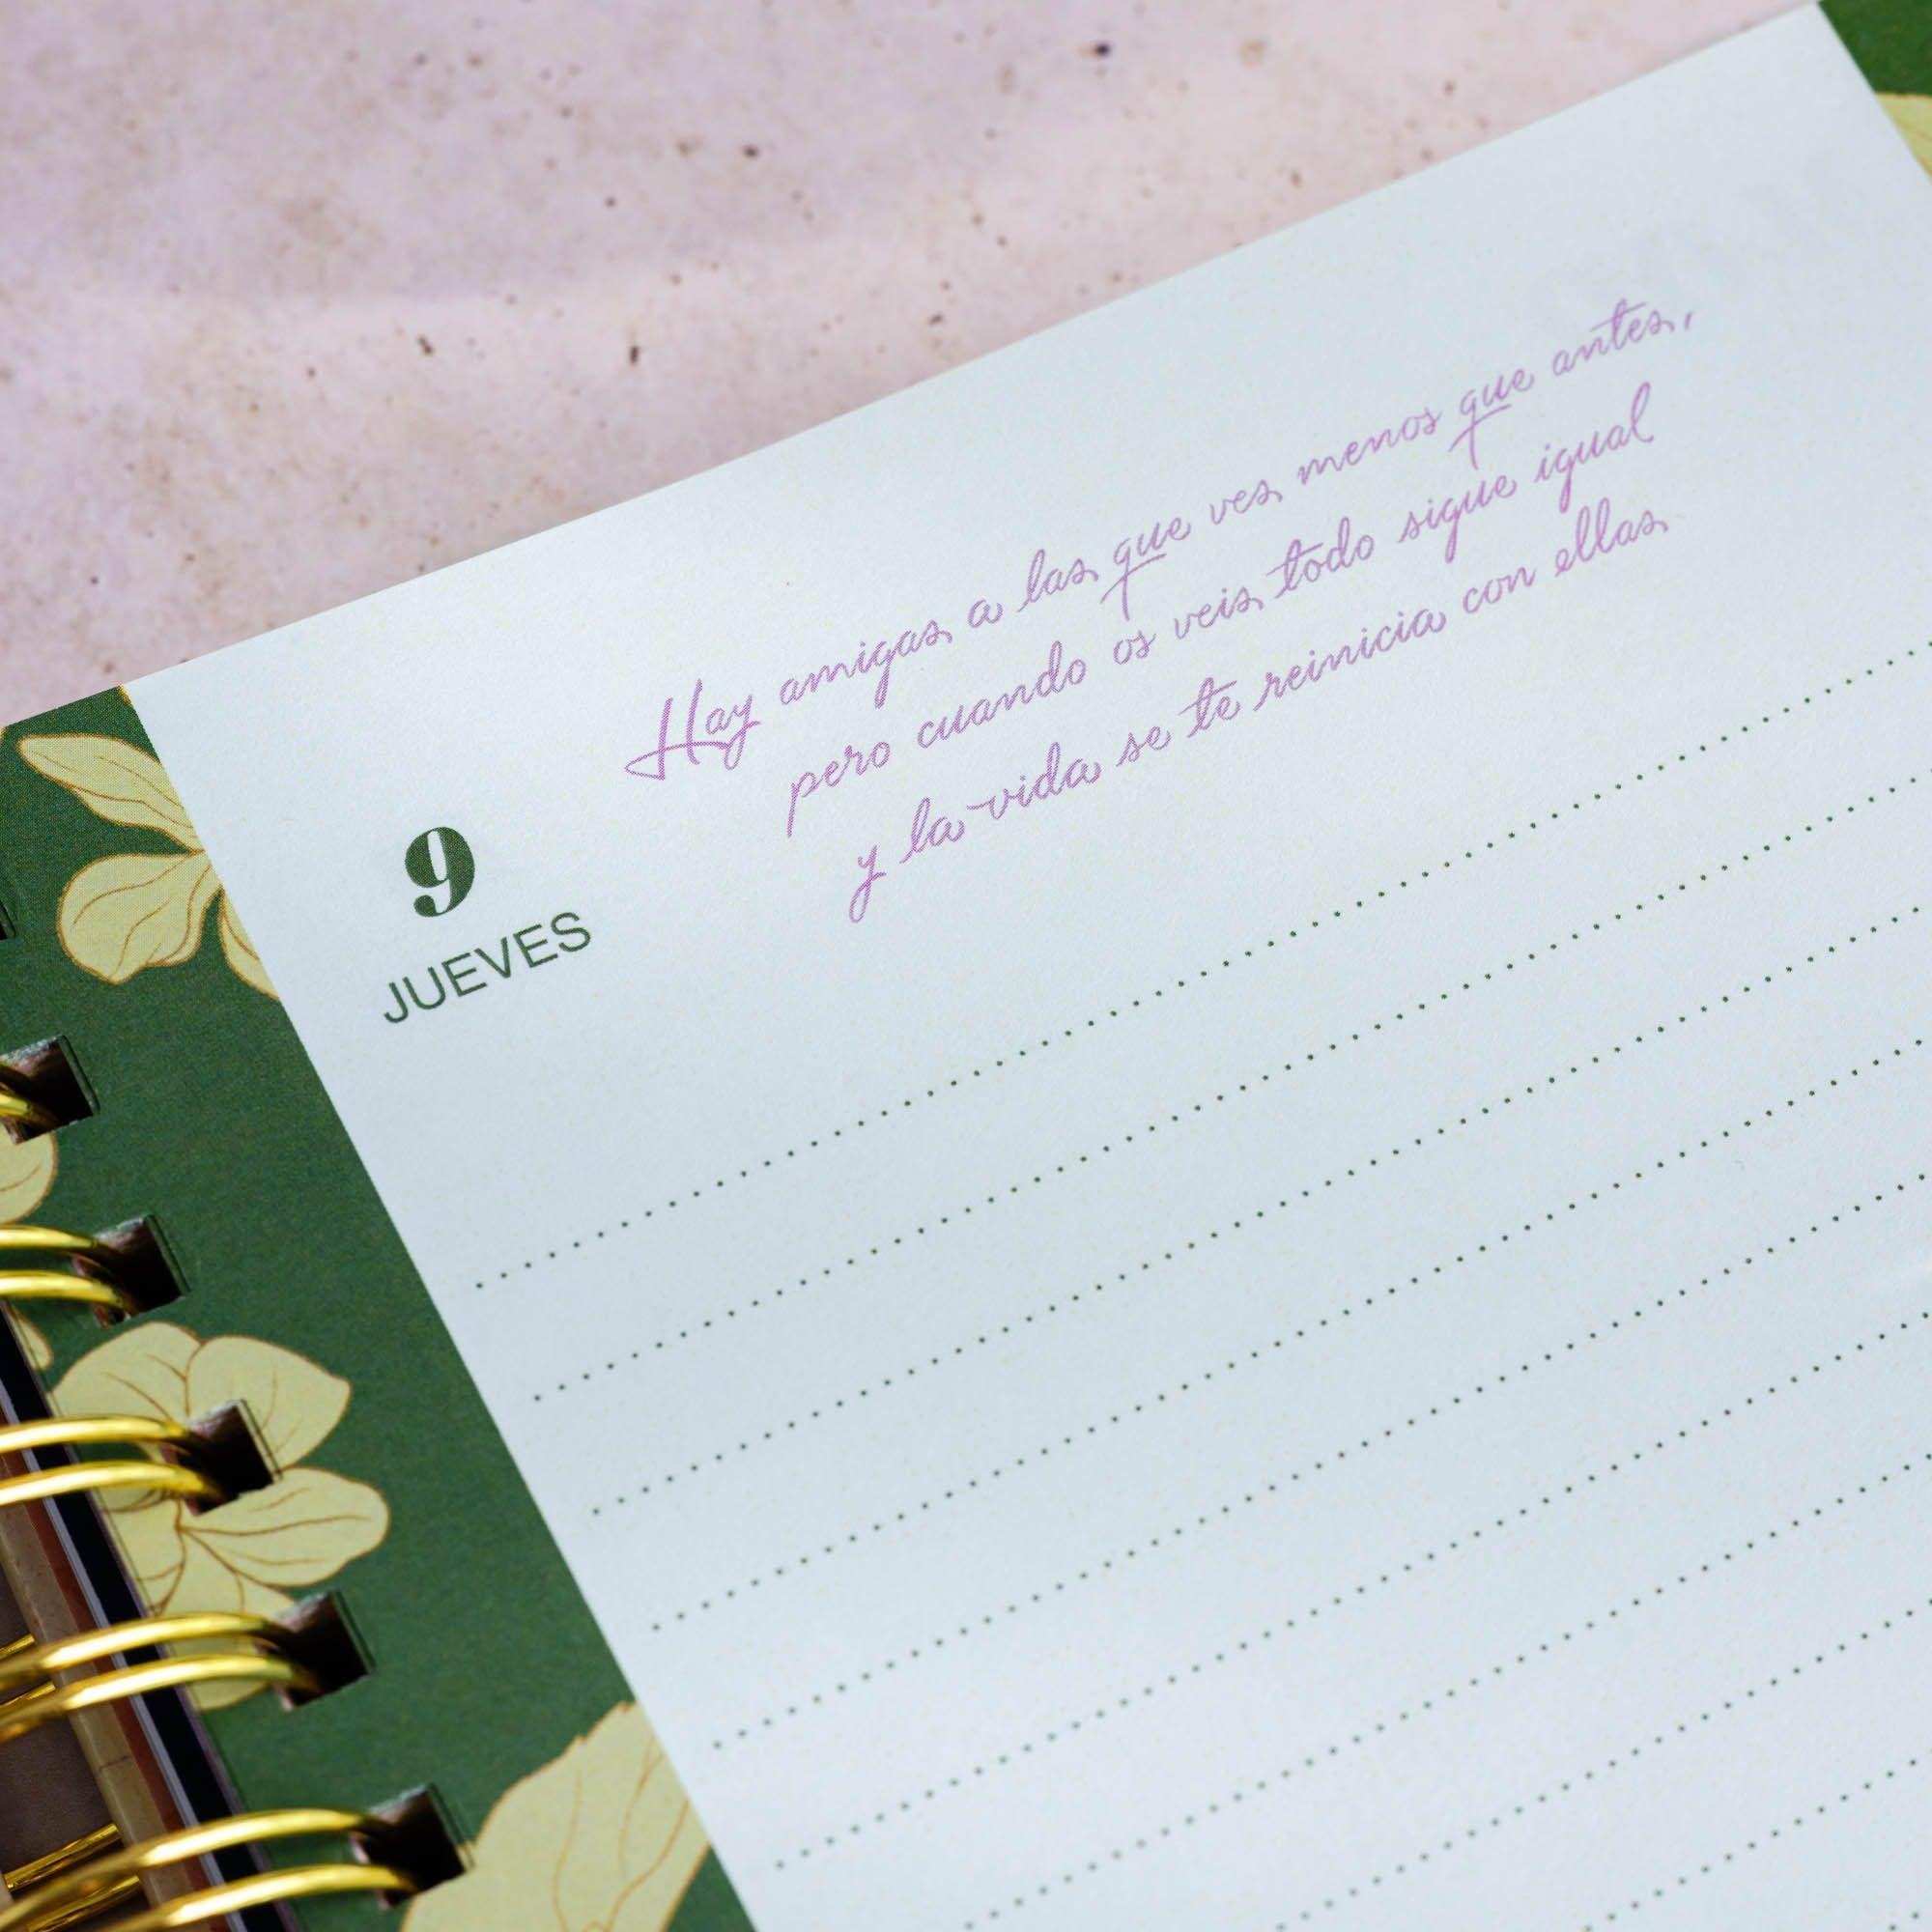 Hay amigas a las que ves menos que antes,
pero cuando os veis todo sigue igual
y la vida se te reinicia con ellas
9
JUEVES